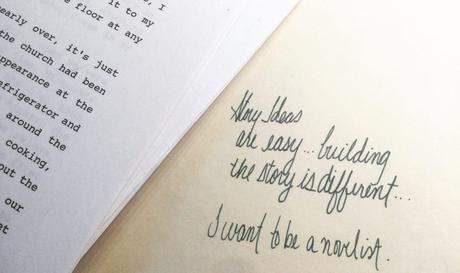 , I
it to my
e floor at any
early over, it's just
the church had been
appearance at the
efrigerator and
around the
cooking,
out the
our
et
Story Ideas
are easy... building
the story is different...
I want to be a novelist.